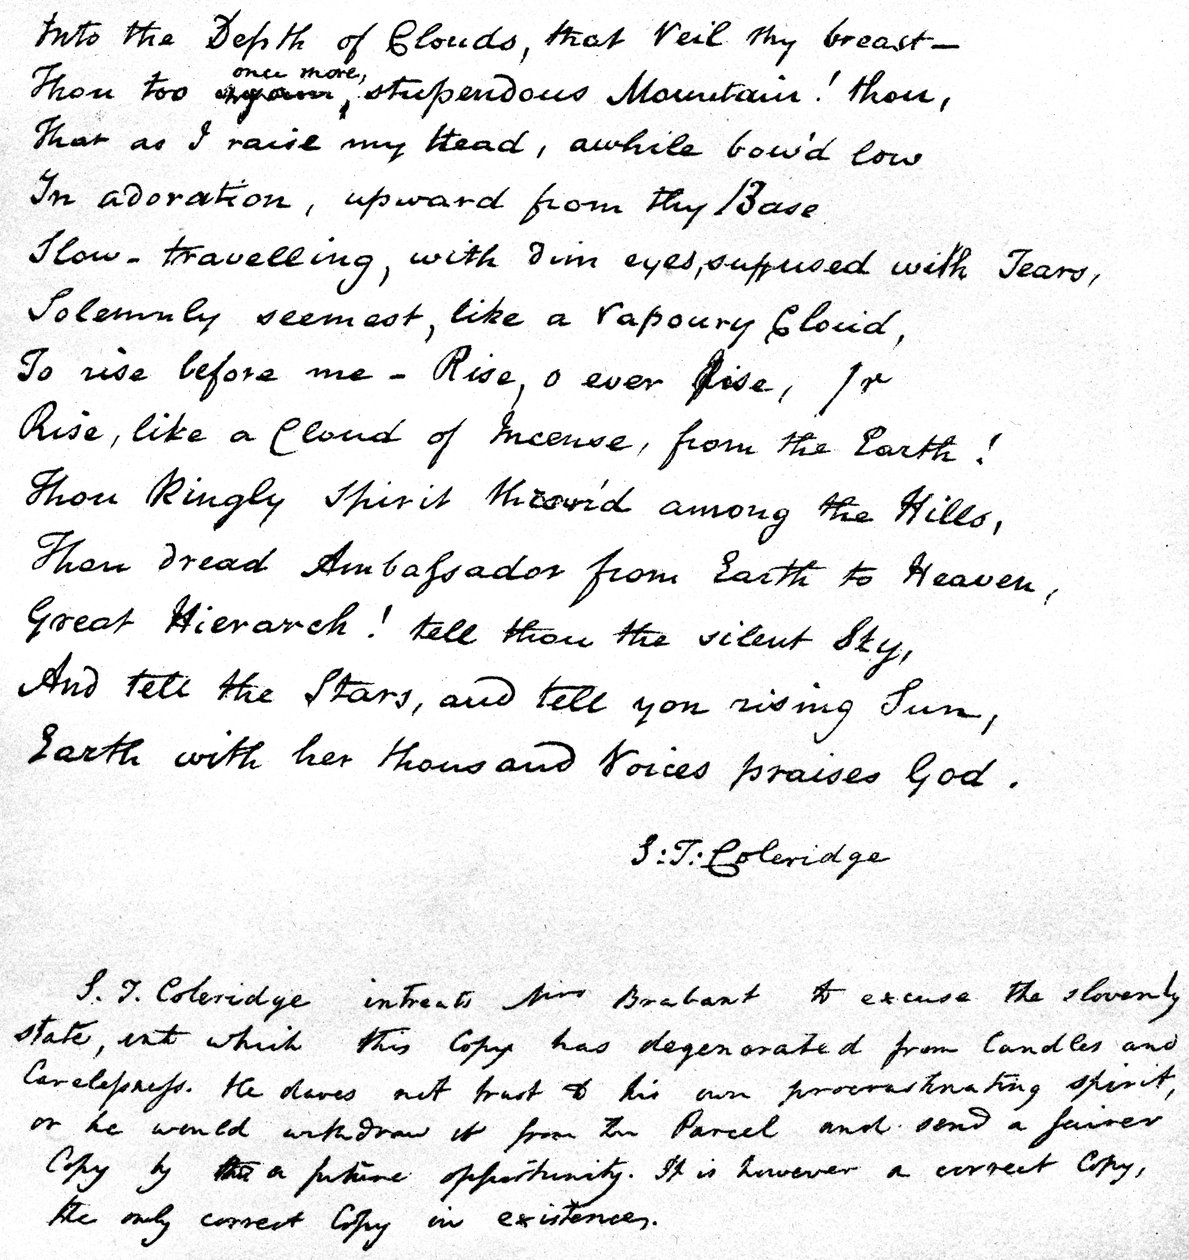 Into the Depth of Clouds, that Veil thy breast—
Thou too again, once more, stupendous Mountain! thou,
That as I raise my Head, awhile bow'd low
In adoration, upward from thy Base
Slow-travelling, with dim eyes, suffused with Tears,
Solemnly seemest, like a Vapoury Cloud,
To rise before me – Rise, o ever Rise,
Rise, like a Cloud of Incense, from the Earth!
Thou kingly Spirit thron'd among the Hills,
Thou dread Ambassador from Earth to Heaven,
Great Hierarch! tell thou the silent Sky,
And tell the Stars, and tell yon rising Sun,
Earth with her thousand Voices praises God.
S: T: Coleridge
S. T. Coleridge intreats Mrs Brabant to excuse the slovenly
state, into which this Copy has degenerated from Candles and
Carelessness. He dares not trust to his own procrastinating spirit,
or he would withdraw it from the Parcel and send a fairer
Copy by a future opportunity. It is however a correct Copy,
the only correct Copy in existence.